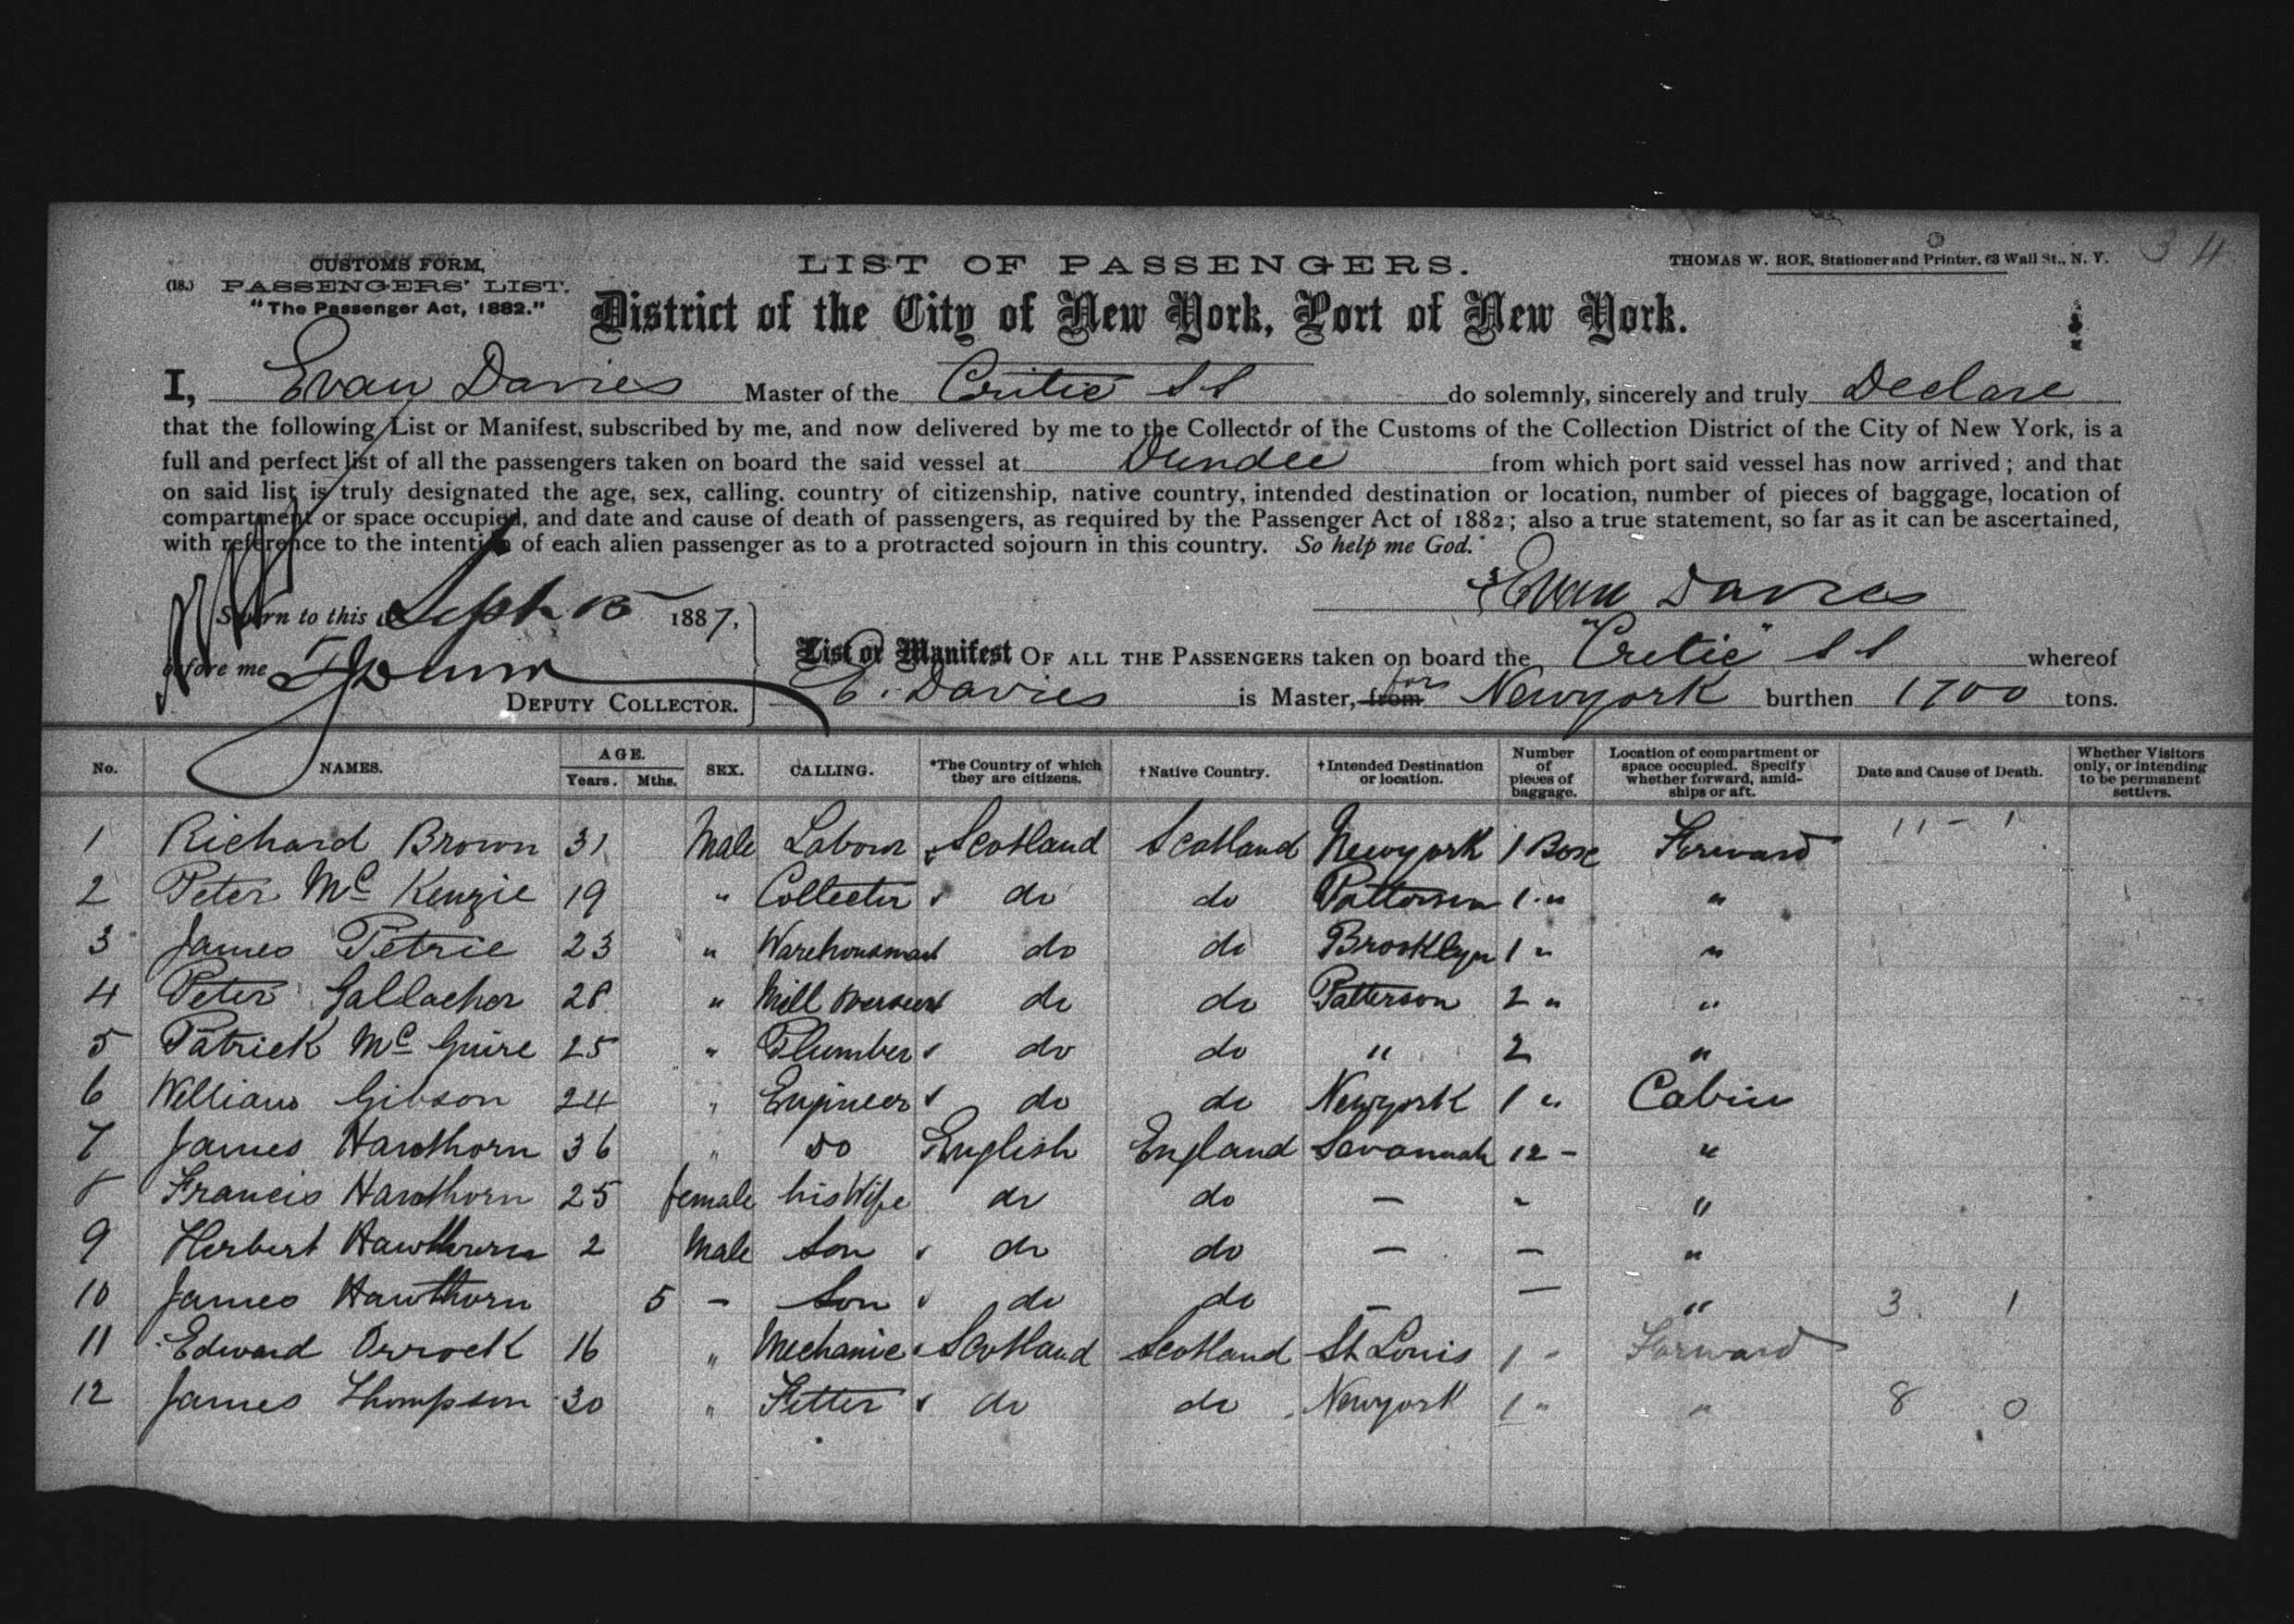 34
CUSTOMS FORM,
(18.) PASSENGERS' LIST.
"The Passenger Act, 1882."
LIST OF PASSENGERS.
THOMAS W. ROE, Stationer and Printer, 63 Wall St., N. Y.
District of the City of New York, Port of New York.
I, Evan Davies Master of the Critic SS do solemnly, sincerely and truly Declare
that the following List or Manifest, subscribed by me, and now delivered by me to the Collector of the Customs of the Collection District of the City of New York, is a
full and perfect list of all the passengers taken on board the said vessel at Dundee from which port said vessel has now arrived; and that
on said list is truly designated the age, sex, calling, country of citizenship, native country, intended destination or location, number of pieces of baggage, location of
compartment or space occupied, and date and cause of death of passengers, as required by the Passenger Act of 1882; also a true statement, so far as it can be ascertained,
with reference to the intention of each alien passenger as to a protracted sojourn in this country. So help me God.
Evan Davies
Sworn to this Sept 15 1887,
before me
DEPUTY COLLECTOR.
List or Manifest OF ALL THE PASSENGERS taken on board the "Critic" SS whereof
E. Davies is Master, from for Newyork burthen 1700 tons.
No. NAMES. AGE. Years. Mths. SEX. CALLING. *The Country of which they are citizens. †Native Country. †Intended Destination or location. Number of pieces of baggage. Location of compartment or space occupied. Specify whether forward, amidships or aft. Date and Cause of Death. Whether Visitors only, or intending to be permanent settlers.
1 Richard Brown 31 Male Labour Scotland Scotland Newyork 1 Box Forward 11 - 1
2 Peter Mc Kenzie 19 " Collector do do Patterson 1 " "
3 James Petrie 23 " Warehousman do do Brooklyn 1 " "
4 Peter Gallacher 28 " Mill Overseer do do Patterson 2 " "
5 Patrick Mc Guire 25 " Plumber do do " 2 "
6 William Gibson 24 " Engineer do do Newyork 1 " Cabin
7 James Hawthorn 36 " Do English England Savannah 12 - "
8 Francis Hawthorn 25 female his Wife do do - - "
9 Herbert Hawthorn 2 Male Son do do - - "
10 James Hawthorn 5 - Son do do - - " 3 1
11 Edward Orrock 16 " Mechanic Scotland Scotland St Louis 1 - Forward
12 James Thompson 30 " Fitter do do Newyork 1 " " 8 0